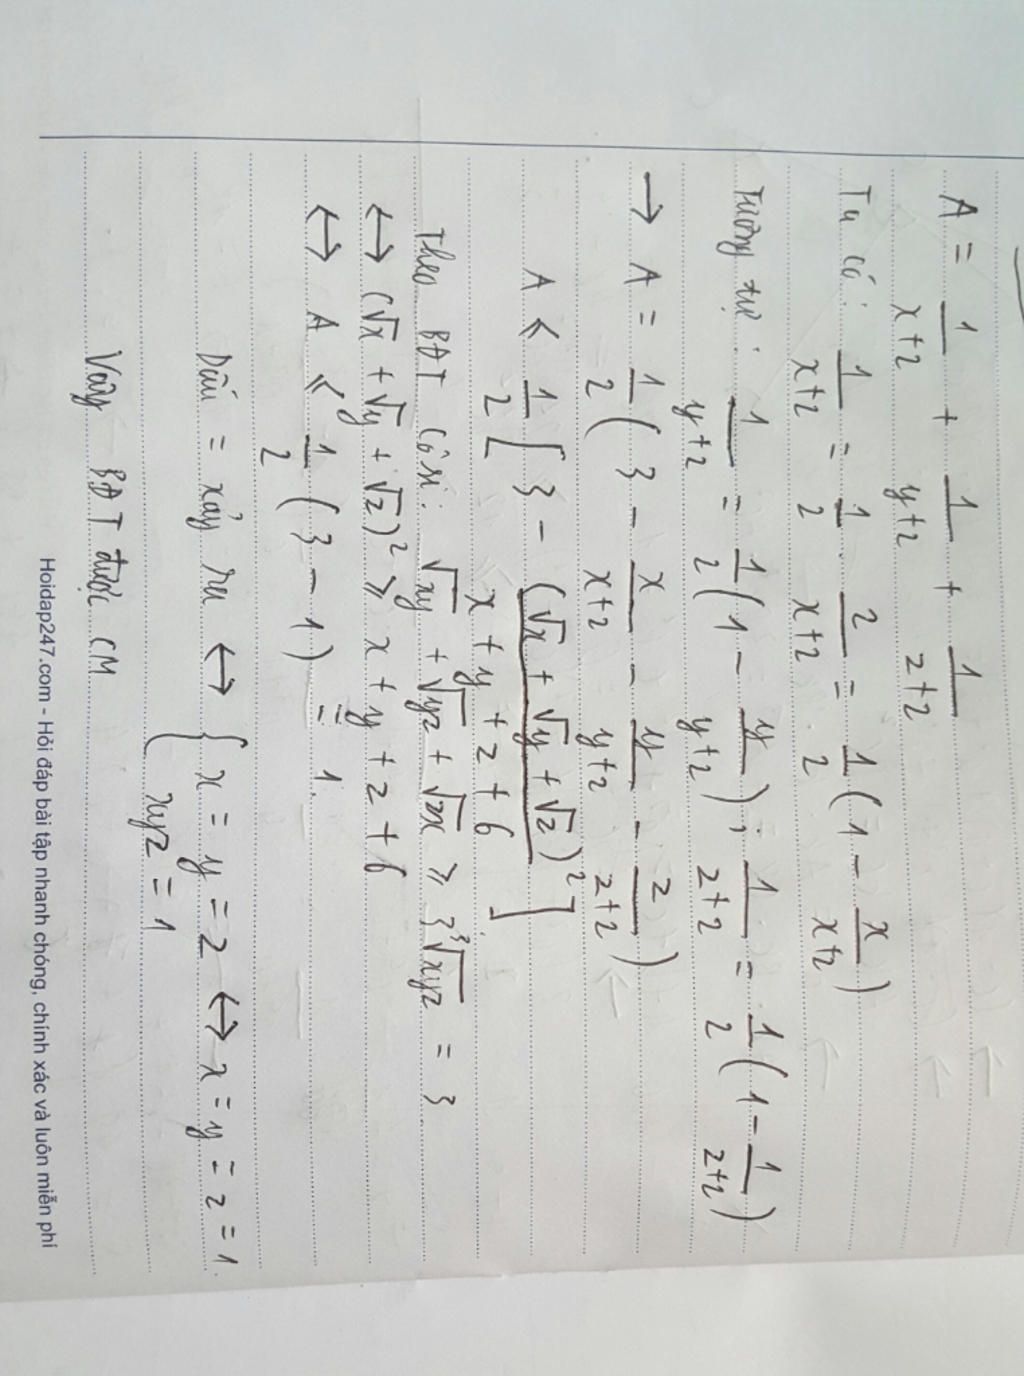 A = 1/(x+2) + 1/(y+2) + 1/(z+2)
Ta có: 1/(x+2) = 1/2 . 2/(x+2) = 1/2 (1 - x/(x+2))
Tương tự: 1/(y+2) = 1/2 (1 - y/(y+2)); 1/(z+2) = 1/2 (1 - 1/(z+2))
→ A = 1/2 (3 - x/(x+2) - y/(y+2) - z/(z+2))
A ≤ 1/2 [3 - (√x + √y + √z)²/(x + y + z + 6)]
Theo BĐT Côsi: √xy + √yz + √zx ≥ 3∛xyz = 3
↔ (√x + √y + √z)² ≥ x + y + z + 6
↔ A ≤ 1/2 (3 - 1) = 1.
Dấu = xảy ra ↔ { x = y = z ↔ x = y = z = 1.
xyz = 1
Vậy BĐT được CM
Hoidap247.com - Hỏi đáp bài tập nhanh chóng, chính xác và luôn miễn phí